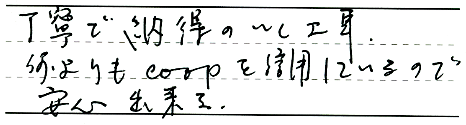 丁寧で納得のいく工事.
何よりも coop を信用しているので
安心出来る.